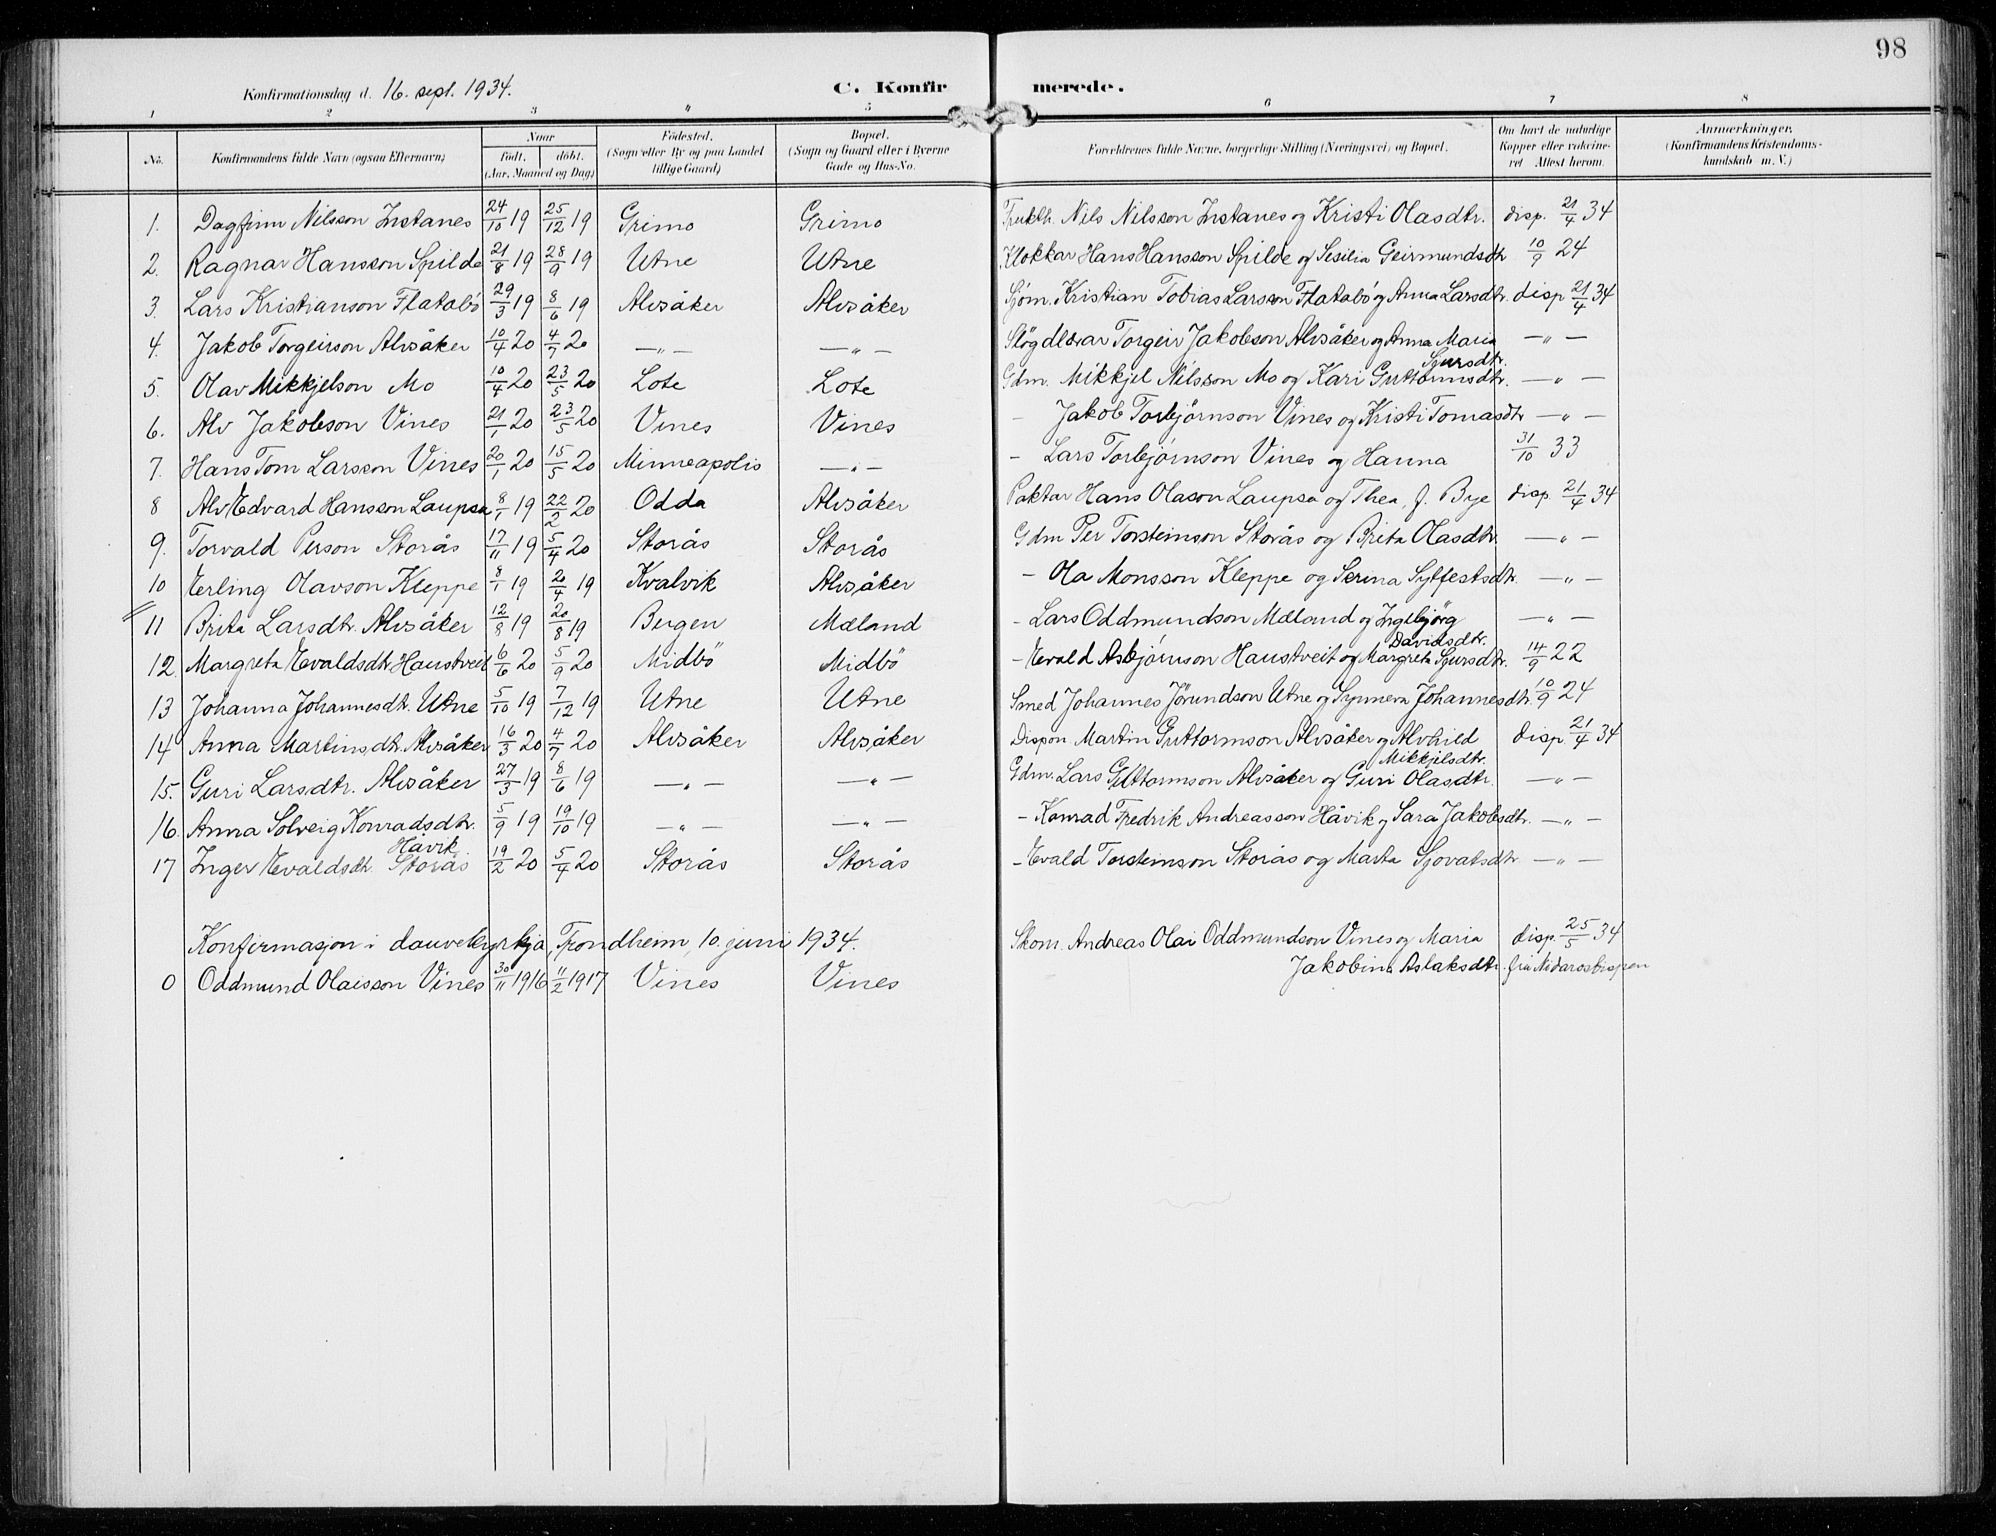 98
Konfirmationsdag d. 16. sept. 1934. C. Konfirmerede.
1 2 3 4 5 6 7 8
No. Konfirmandens fulde Navn (ogsaa Efternavn) Naar født. døbt. (Aar, Maaned og Dag) Fødested. (Sogn eller By og paa Landet tillige Gaard) Bopæl. (Sogn og Gaard eller i Byerne Gade og Hus-No. Forældrenes fulde Navne, borgerlige Stilling (Næringsvei) og Bopæl. Om havt de naturlige Kopper eller vakcineret Attest herom. Anmærkninger. (Konfirmandens Kristendomskundskab m. V.)
1. Dagfinn Nilsson Instanes 24/10 19 25/12 19 Grimo Grimo Frukth. Nils Nilsson Instanes og Kristi Olasdtr. disp. 21/4 34
2. Ragnar Hansson Spilde 21/8 19 28/9 19 Utne Utne Klokkar Hans Hansson Spilde og Sesilia Geirmundsdtr 10/9 24
3. Lars Kristianson Flatabö 29/3 19 8/6 19 Alvsåker Alvsåker Sjøm. Kristian Tobias Larsson Flatabö og Anna Larsdtr. disp 21/4 34
4. Jakob Torgeirson Alvsåker 10/4 20 4/7 20 —"— —"— Sløgdlærar Torgeir Jakobson Alvsåker og Anna Maria Sjursdtr. —"—
5. Olav Mikkjelson Mo 10/4 20 23/5 20 Lote Lote Gdm. Mikkjel Nilsson Mo og Kari Guttormsdtr. —"—
6. Alv Jakobson Vines 21/1 20 23/5 20 Vines Vines - Jakob Torbjørnson Vines og Kristi Tomasdtr —"—
7. Hans Tom Larsson Vines 20/1 20 15/5 20 Minneapolis —"— - Lars Torbjørnson Vines og Hanna 31/10 33
8 Alv Edvard Hansson Laupsa 8/1 19 22/2 20 Odda Alvsåker Paktar Hans Olason Laupsa og Thea, f. Bye disp. 21/4 34
9. Torvald Person Storås 17/11 19 5/4 20 Storås Storås Gdm Per Torsteinson Storås og Brita Olasdtr. —"—
10 Erling Olavson Kleppe 8/1 19 20/4 19 Kvalvik Alvsåker - Ola Monsson Kleppe og Serina Sylfestsdtr. —"—
11 Brita Larsdtr. Alvsåker 12/8 19 20/8 19 Bergen Mæland - Lars Oddmundson Mæland og Ingebjørg Davidsdtr. —"—
12. Margreta Evaldsdtr. Haustveit 6/6 20 5/9 20 Midbö Midbö - Evald Asbjørnson Haustveit og Margreta Sjursdtr. 14/9 22
13 Johanna Johannesdt. Utne 5/10 19 7/12 19 Utne Utne Smed Johannes Jörundson Utne og Synneva Johannesdtr. 10/9 24
14 Anna Martinsdtr. Alvsåker 16/3 20 4/7 20 Alvsåker Alvsåker Dispon. Martin Guttormson Alvsåker og Alvhild Mikkjelsdtr. disp. 21/4 34
15. Guri Larsdtr. Alvsåker 27/3 19 8/6 19 —"— —"— Gdm. Lars Guttormson Alvsåker og Guri Olasdtr. —"—
16. Anna Solveig Konradsdtr. Håvik 5/9 19 19/10 19 —"— —"— - Konrad Fredrik Andreasson Håvik og Sara Jakobsdtr. —"—
17 Inger Evaldsdtr. Storås 19/2 20 5/4 20 Storås Storås - Evald Torsteinson Storås og Marta Sjovatsdtr —"—
Konfirmasjon i dauvekyrkja, Trondheim, 10. juni 1934. Skom. Andreas Olai Oddmundson Vines og Maria disp. 25/5 34
0 Oddmund Olaisson Vines 30/11 1916 11/2 1917 Vines Vines Jakobina Aslaksdtr. frå Nidarosbispen